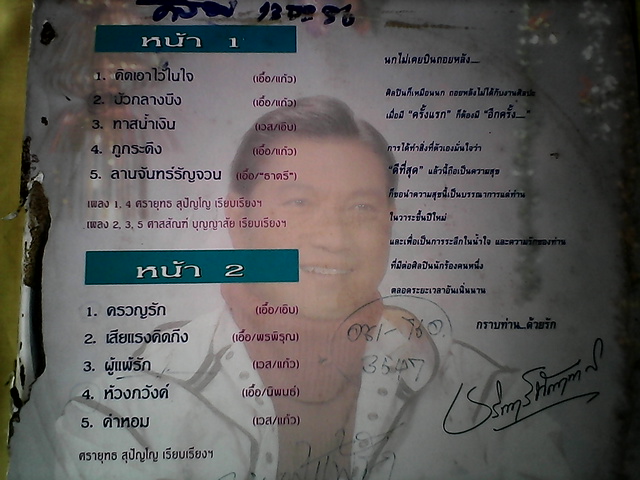 หน้า 1
1. คิดเอาไว้ในใจ (เอื้อ/แก้ว)
2. บัวกลางบึง (เอื้อ/แก้ว)
3. ทาสน้ำเงิน (เวส/เอิบ)
4. ภูกระดึง (เอื้อ/แก้ว)
5. ลานจันทร์รัญจวน (เอื้อ/"ธาตรี")
เพลง 1, 4 ศรายุทธ สุปัญโญ เรียบเรียงฯ
เพลง 2, 3, 5 ศาสสัณฑ์ บุญญาสัย เรียบเรียงฯ
หน้า 2
1. ครวญรัก (เอื้อ/เอิบ)
2. เสียแรงคิดถึง (เอื้อ/พรพิรุณ)
3. ผู้แพ้รัก (เวส/แก้ว)
4. ห้วงกวังค์ (เอื้อ/นิพนธ์)
5. คำหอม (เวส/แก้ว)
ศรายุทธ สุปัญโญ เรียบเรียงฯ
นกไม่เคยบินถอยหลัง.....
ศิลปินก็เหมือนนก ถอยหลังไม่ได้กับงานศิลปะ
เมื่อมี "ครั้งแรก" ก็ต้องมี "อีกครั้ง....."
การได้ทำสิ่งที่ตัวเองมั่นใจว่า
"ดีที่สุด" แล้วนี้ถือเป็นความสุข
ก็ขอนำความสุขนี้เป็นบรรณาการแด่ท่าน
ในวาระขึ้นปีใหม่
และเพื่อเป็นการระลึกในน้ำใจ และความรักของท่าน
ที่มีต่อศิลปินนักร้องคนหนึ่ง
ตลอดระยะเวลาอันเนิ่นนาน
กราบท่าน...ด้วยรัก